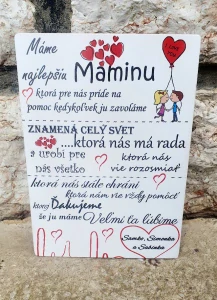 Máme
I love you
najlepšiu Maminu
ktorá pre nás príde na
pomoc kedykoľvek ju zavoláme
ZNAMENÁ CELÝ SVET
....ktorá nás má rada
a urobí pre
nás všetko
ktorá nás
vie rozosmiať
ktorá nás stále chráni
ktorá nám vie vždy pomôcť
ktorej Ďakujeme
že ju máme Veľmi ťa ľúbime
Samko, Simonka
a Sabinka